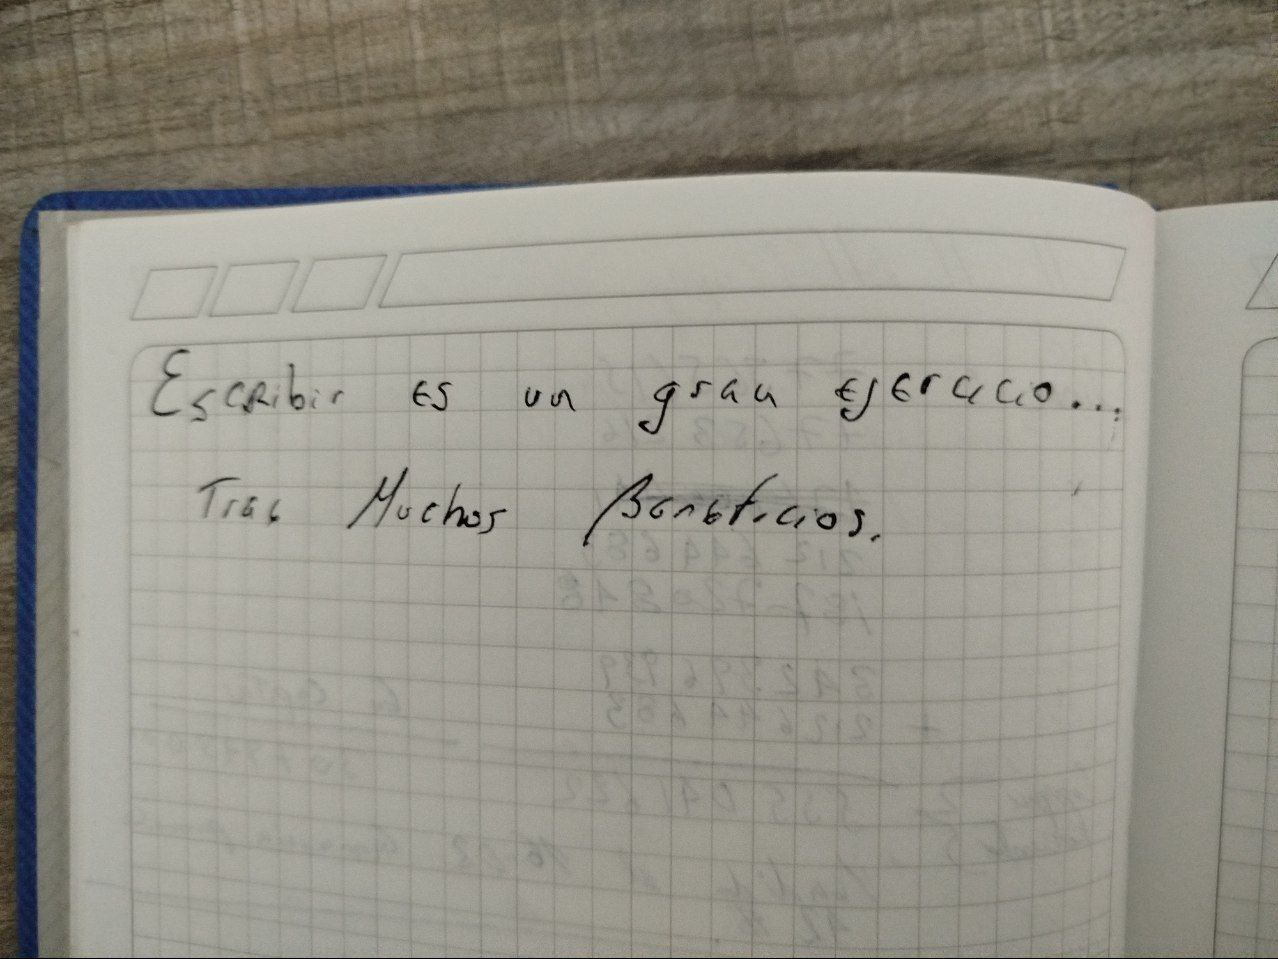 Escribir es un gran ejercicio...
Trae Muchos Beneficios.